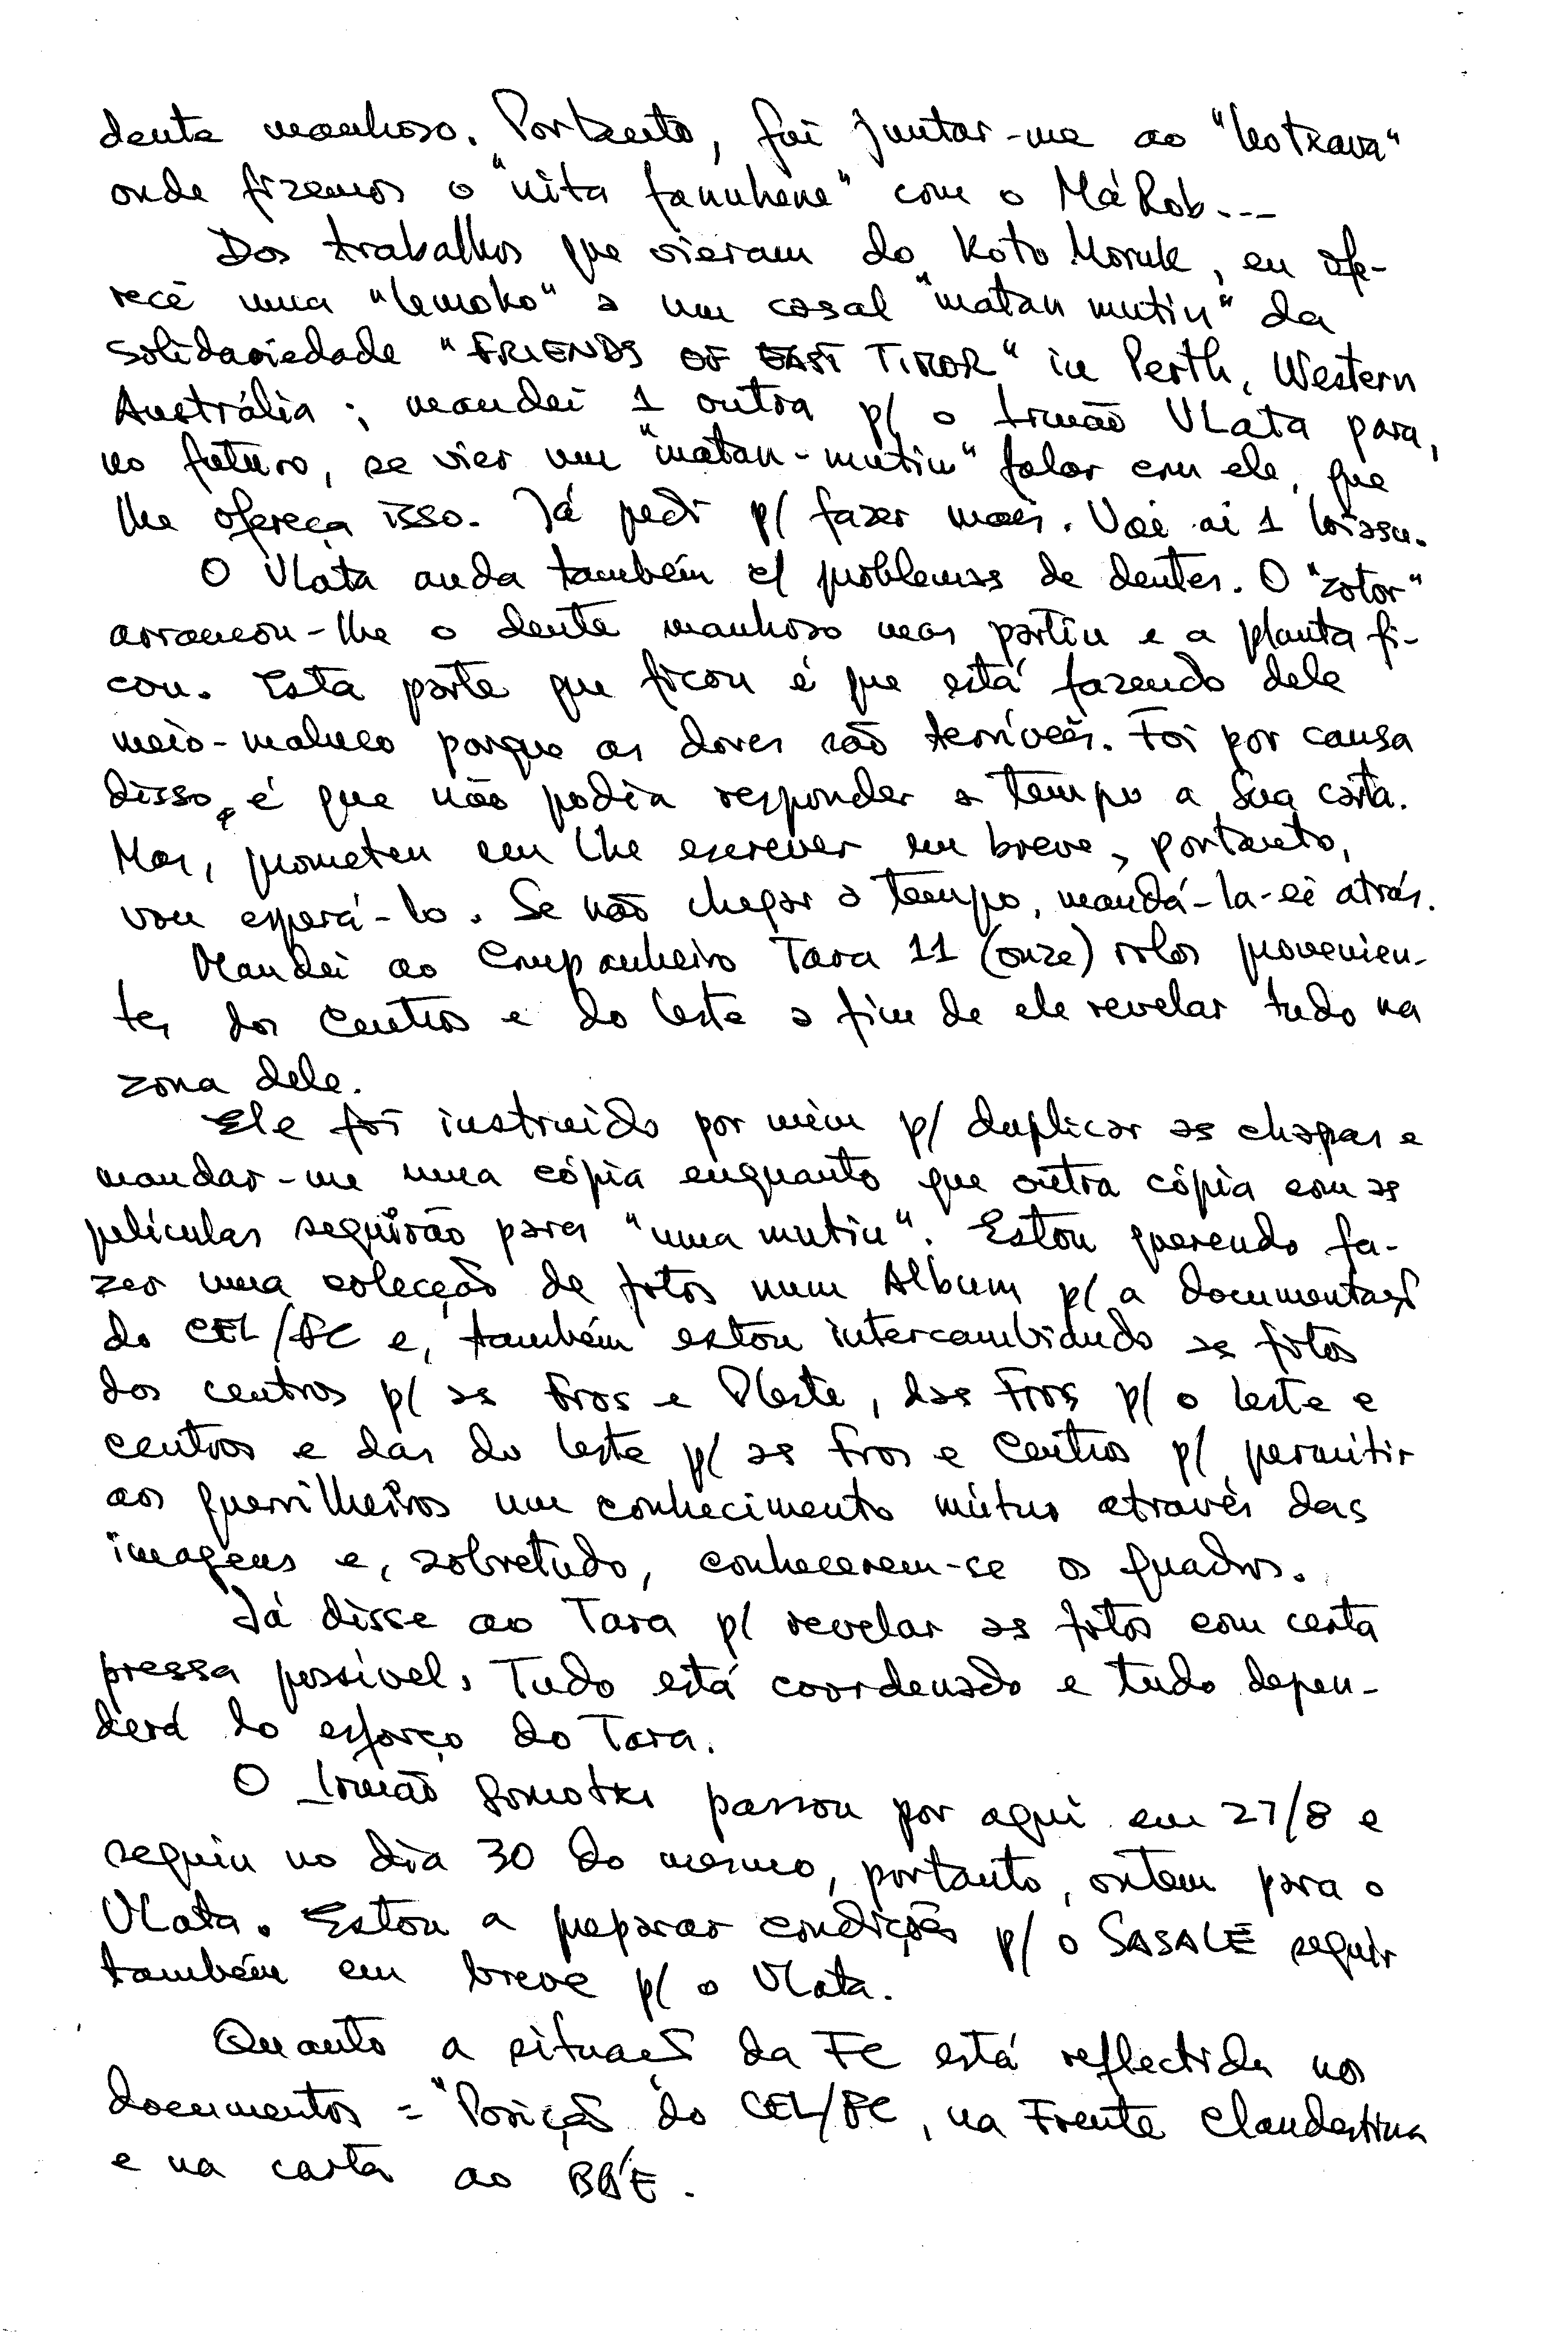 dente manhoso. Portanto, fui juntar-me ao "leotxava"
onde fizemos o "nita fanuhene" com o Má Rob...
Dos trabalhos que vieram do Koto Moruk, eu ofe-
recê uma "lemoko" a um casal "matan mutin" da
solidariedade "FRIENDS OF EAST TIMOR" in Perth, Western
Austrália; mandei 1 outra p/ o Irmão ULata para,
no futuro, se vier um "matan-mutin" falar com ele, que
lhe ofereça isso. Já pedi p/ fazer mais. Vai aí 1
O ULata anda também c/ problemas de dentes. O "zotor"
arrancou-lhe o dente manhoso mas partiu e a planta fi-
cou. Esta parte que ficou é que está fazendo dele
meio-maluco porque as dores são terríveis. Foi por causa
disso, é que não podia responder a tempo a Sua carta.
Mas, prometeu em lhe escrever em breve, portanto,
vou esperá-lo. Se não chegar a tempo, mandá-la-ei atrás.
Mandei ao Companheiro Tara 11 (onze) rolos provenien-
tes dos Centros e do leste a fim de ele revelar tudo na
zona dele.
Ele foi instruido por mim p/ duplicar as chapas e
mandar-me uma cópia enquanto que outra cópia com as
películas seguirão para "uma mutin". Estou querendo fa-
zer uma colecção de fotos num Album p/ a documentação
do CEL/FC e, também estou intercambiando as fotos
dos centros p/ as fros e Pleste, das fros p/ o leste e
centros e das do leste p/ as fros e Centros p/ permitir
aos guerrilheiros um conhecimento mútuo através das
imagens e, sobretudo, conhecerem-se os quadros.
Já disse ao Tara p/ revelar as fotos com certa
pressa possível. Tudo está coordenado e tudo depen-
derá do esforço do Tara.
O Irmão Somotxo passou por aqui em 27/8 e
seguiu no dia 30 do mesmo, portanto, ontem para o
ULata. Estou a preparar condições p/ o SASALÉ seguir
também em breve p/ o ULata.
Quanto a situação da FC está reflectida nos
documentos = "Posição do CEL/FC, na Frente Clandestina
e na carta ao